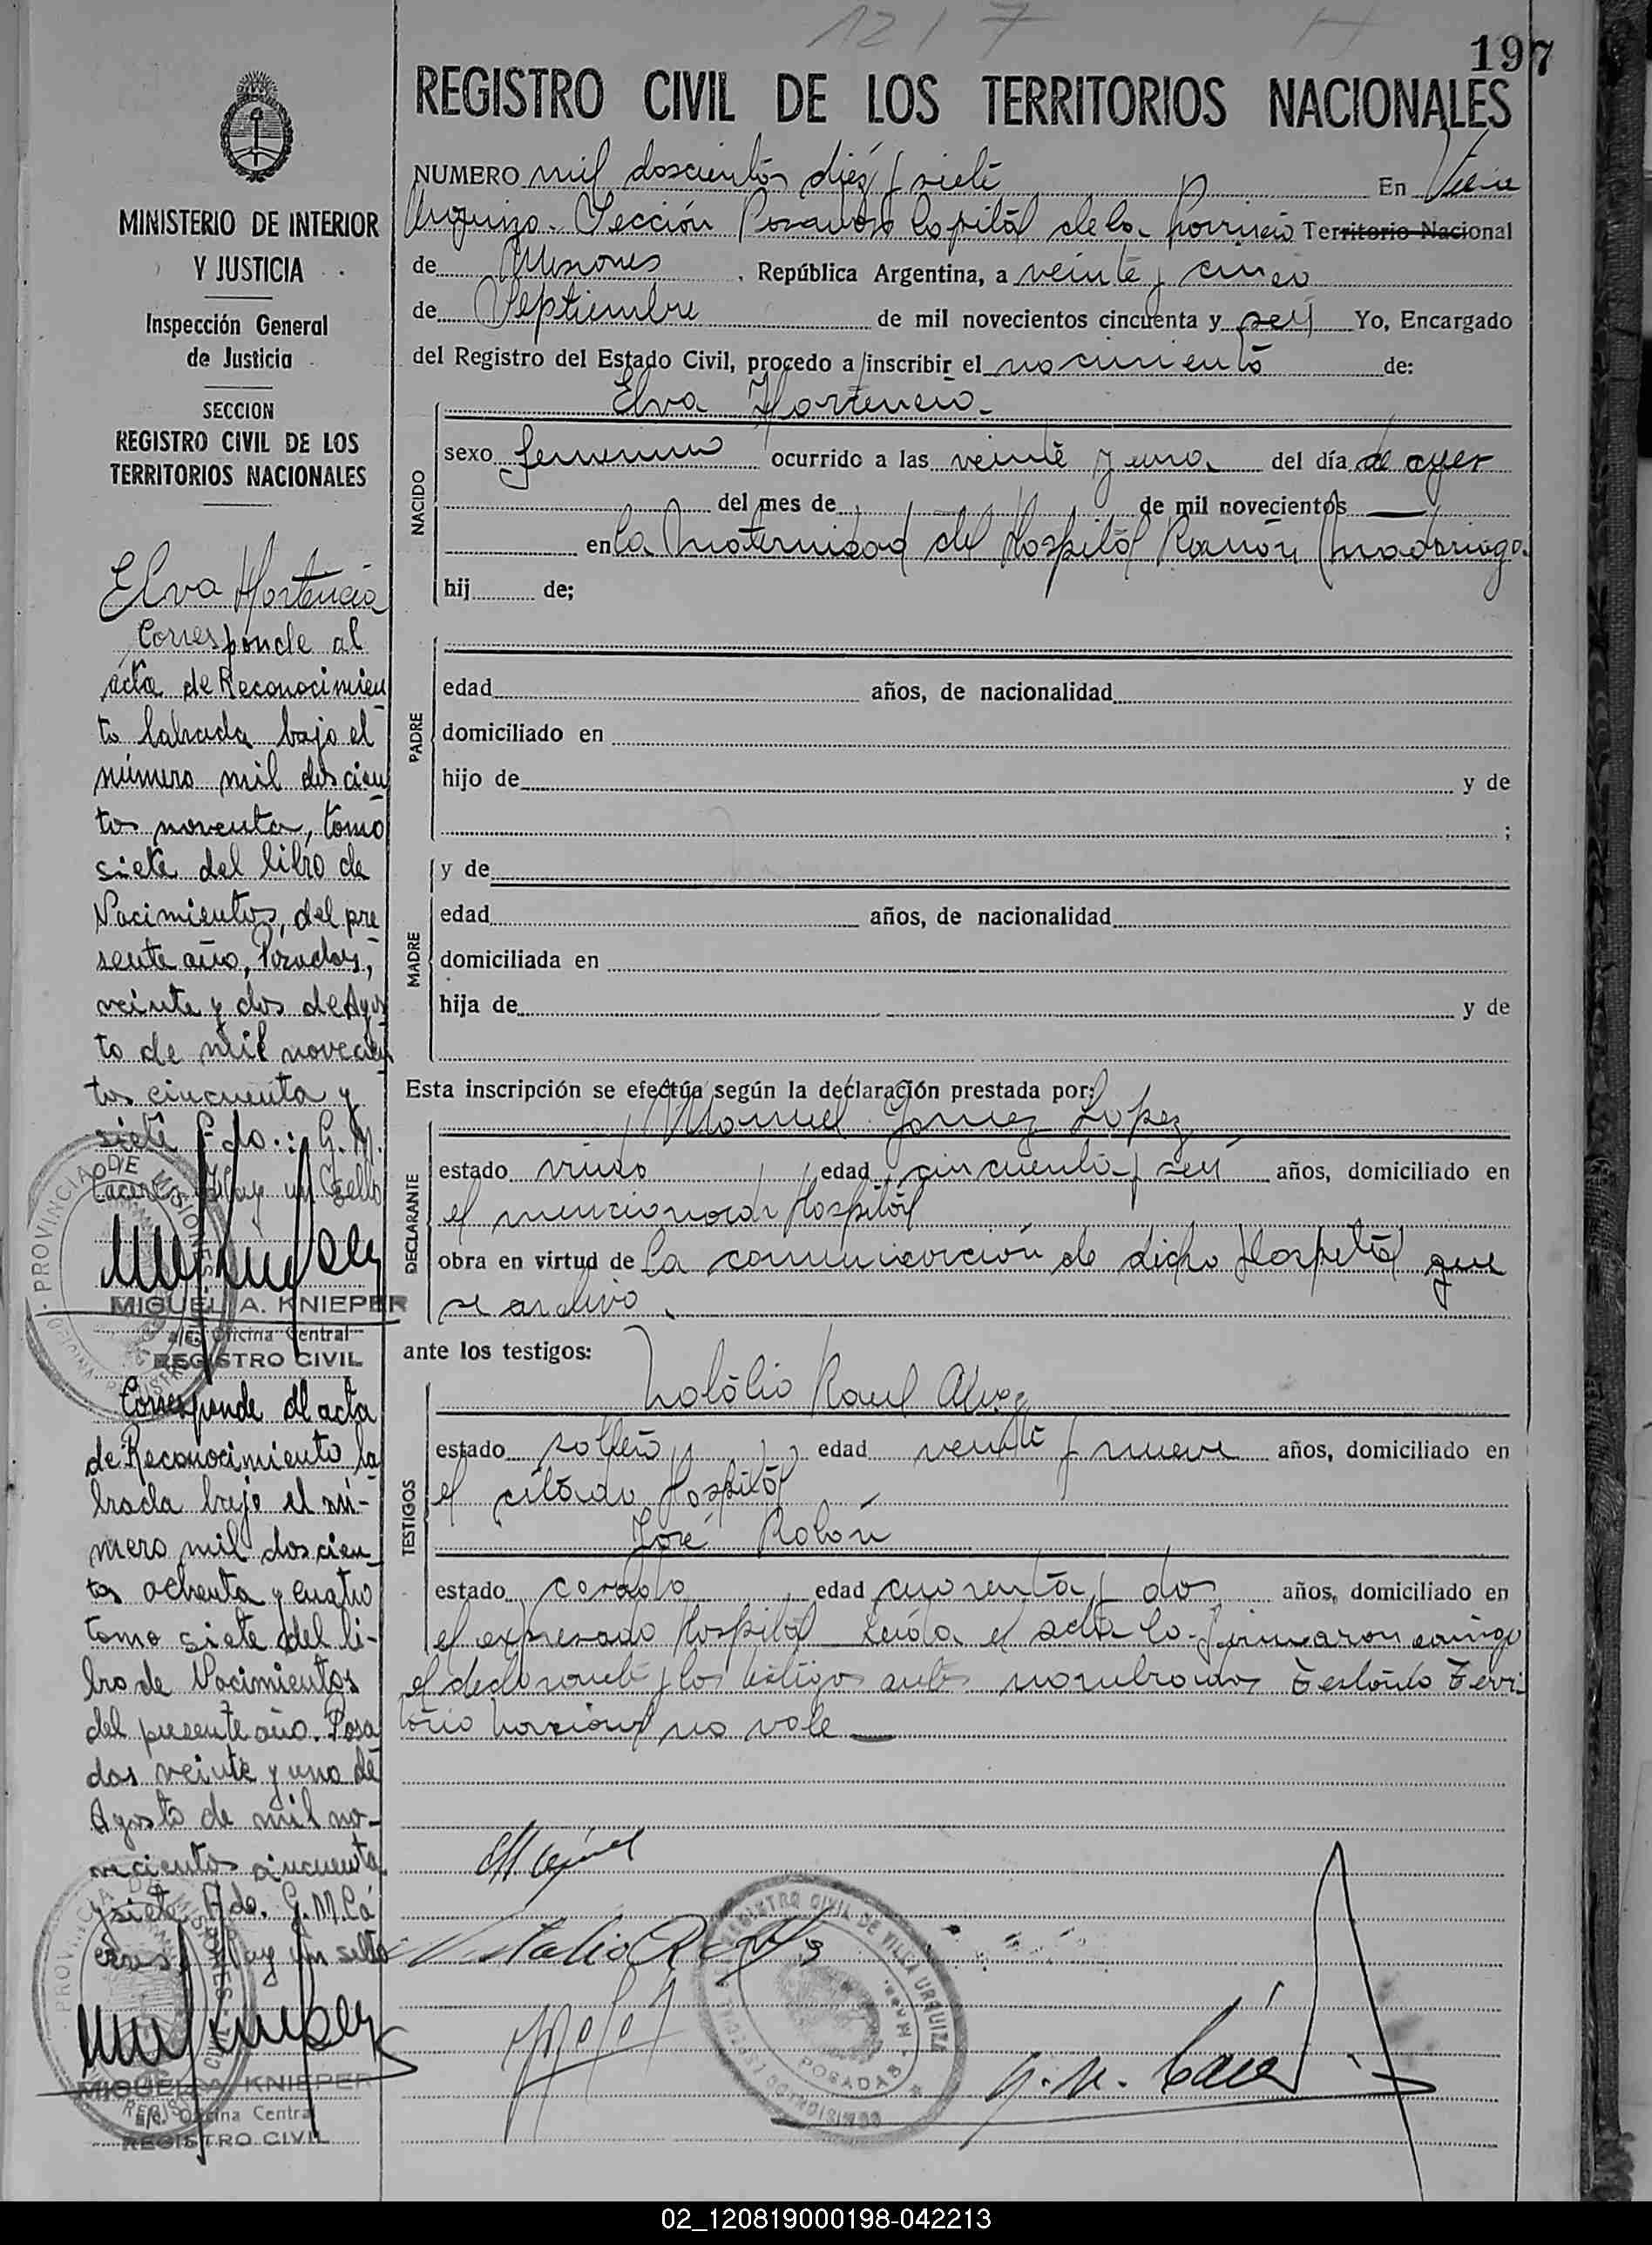 1217
197
REGISTRO CIVIL DE LOS TERRITORIOS NACIONALES
NUMERO mil doscientos diez y siete En Villa
Urquiza. Sección Posadas Capital de la Provincia Territorio Nacional
de Misiones, República Argentina, a veinte y cinco
de Septiembre de mil novecientos cincuenta y seis Yo, Encargado
del Registro del Estado Civil, procedo a inscribir el nacimiento de:
NACIDO
Elva Hortencia.
sexo femenino ocurrido a las veinte y una del día de ayer
del mes de de mil novecientos —
en la Maternidad del Hospital Ramón Madariaga.
hij de;
PADRE
edad años, de nacionalidad
domiciliado en
hijo de y de
;
MADRE
y de
edad años, de nacionalidad
domiciliada en
hija de y de
Esta inscripción se efectúa según la declaración prestada por:
DECLARANTE
Manuel Gomez Lopez
estado viudo edad cincuenta y seis años, domiciliado en
el mencionado Hospital
obra en virtud de la comunicación de dicho Hospital que
se archiva.
ante los testigos:
TESTIGOS
Natalio Raul
estado soltero edad veinte y nueve años, domiciliado en
el citado Hospital
José Rolón
estado casado edad cuarenta y dos años, domiciliado en
el expresado Hospital Leída el acta la firmaron conmigo
el declarante y los testigos antes nombrados Testado Terri
torio Nacional no vale —
REGISTRO CIVIL DE VILLA URQUIZA
POSADAS
G. M. Cáceres
MINISTERIO DE INTERIOR
Y JUSTICIA
Inspección General
de Justicia
SECCION
REGISTRO CIVIL DE LOS
TERRITORIOS NACIONALES
Elva Hortencia
Corresponde al
acta de Reconocimien
to labrada bajo el
número mil doscien
tos noventa, tomo
siete del libro de
Nacimientos, del pre
sente año, Posadas,
veinte y dos de Agos
to de mil novecien
tos cincuenta y
siete Fdo.: G. M.
Caceres Hay un Sello
PROVINCIA DE MISIONES
MIGUEL A. KNIEPER
a/c. Oficina Central
REGISTRO CIVIL
Corresponde al acta
de Reconocimiento la
brada bajo el nú-
mero mil doscien
tos ochenta y cuatro
tomo siete del li-
bro de Nacimientos
del presente año. Posa
das veinte y uno de
Agosto de mil no-
vecientos cincuenta
y siete Fdo. G. M. Cá
ceres, Hay un sello
MIGUEL A. KNIEPER
a/c. Oficina Central
REGISTRO CIVIL
02_120819000198-042213